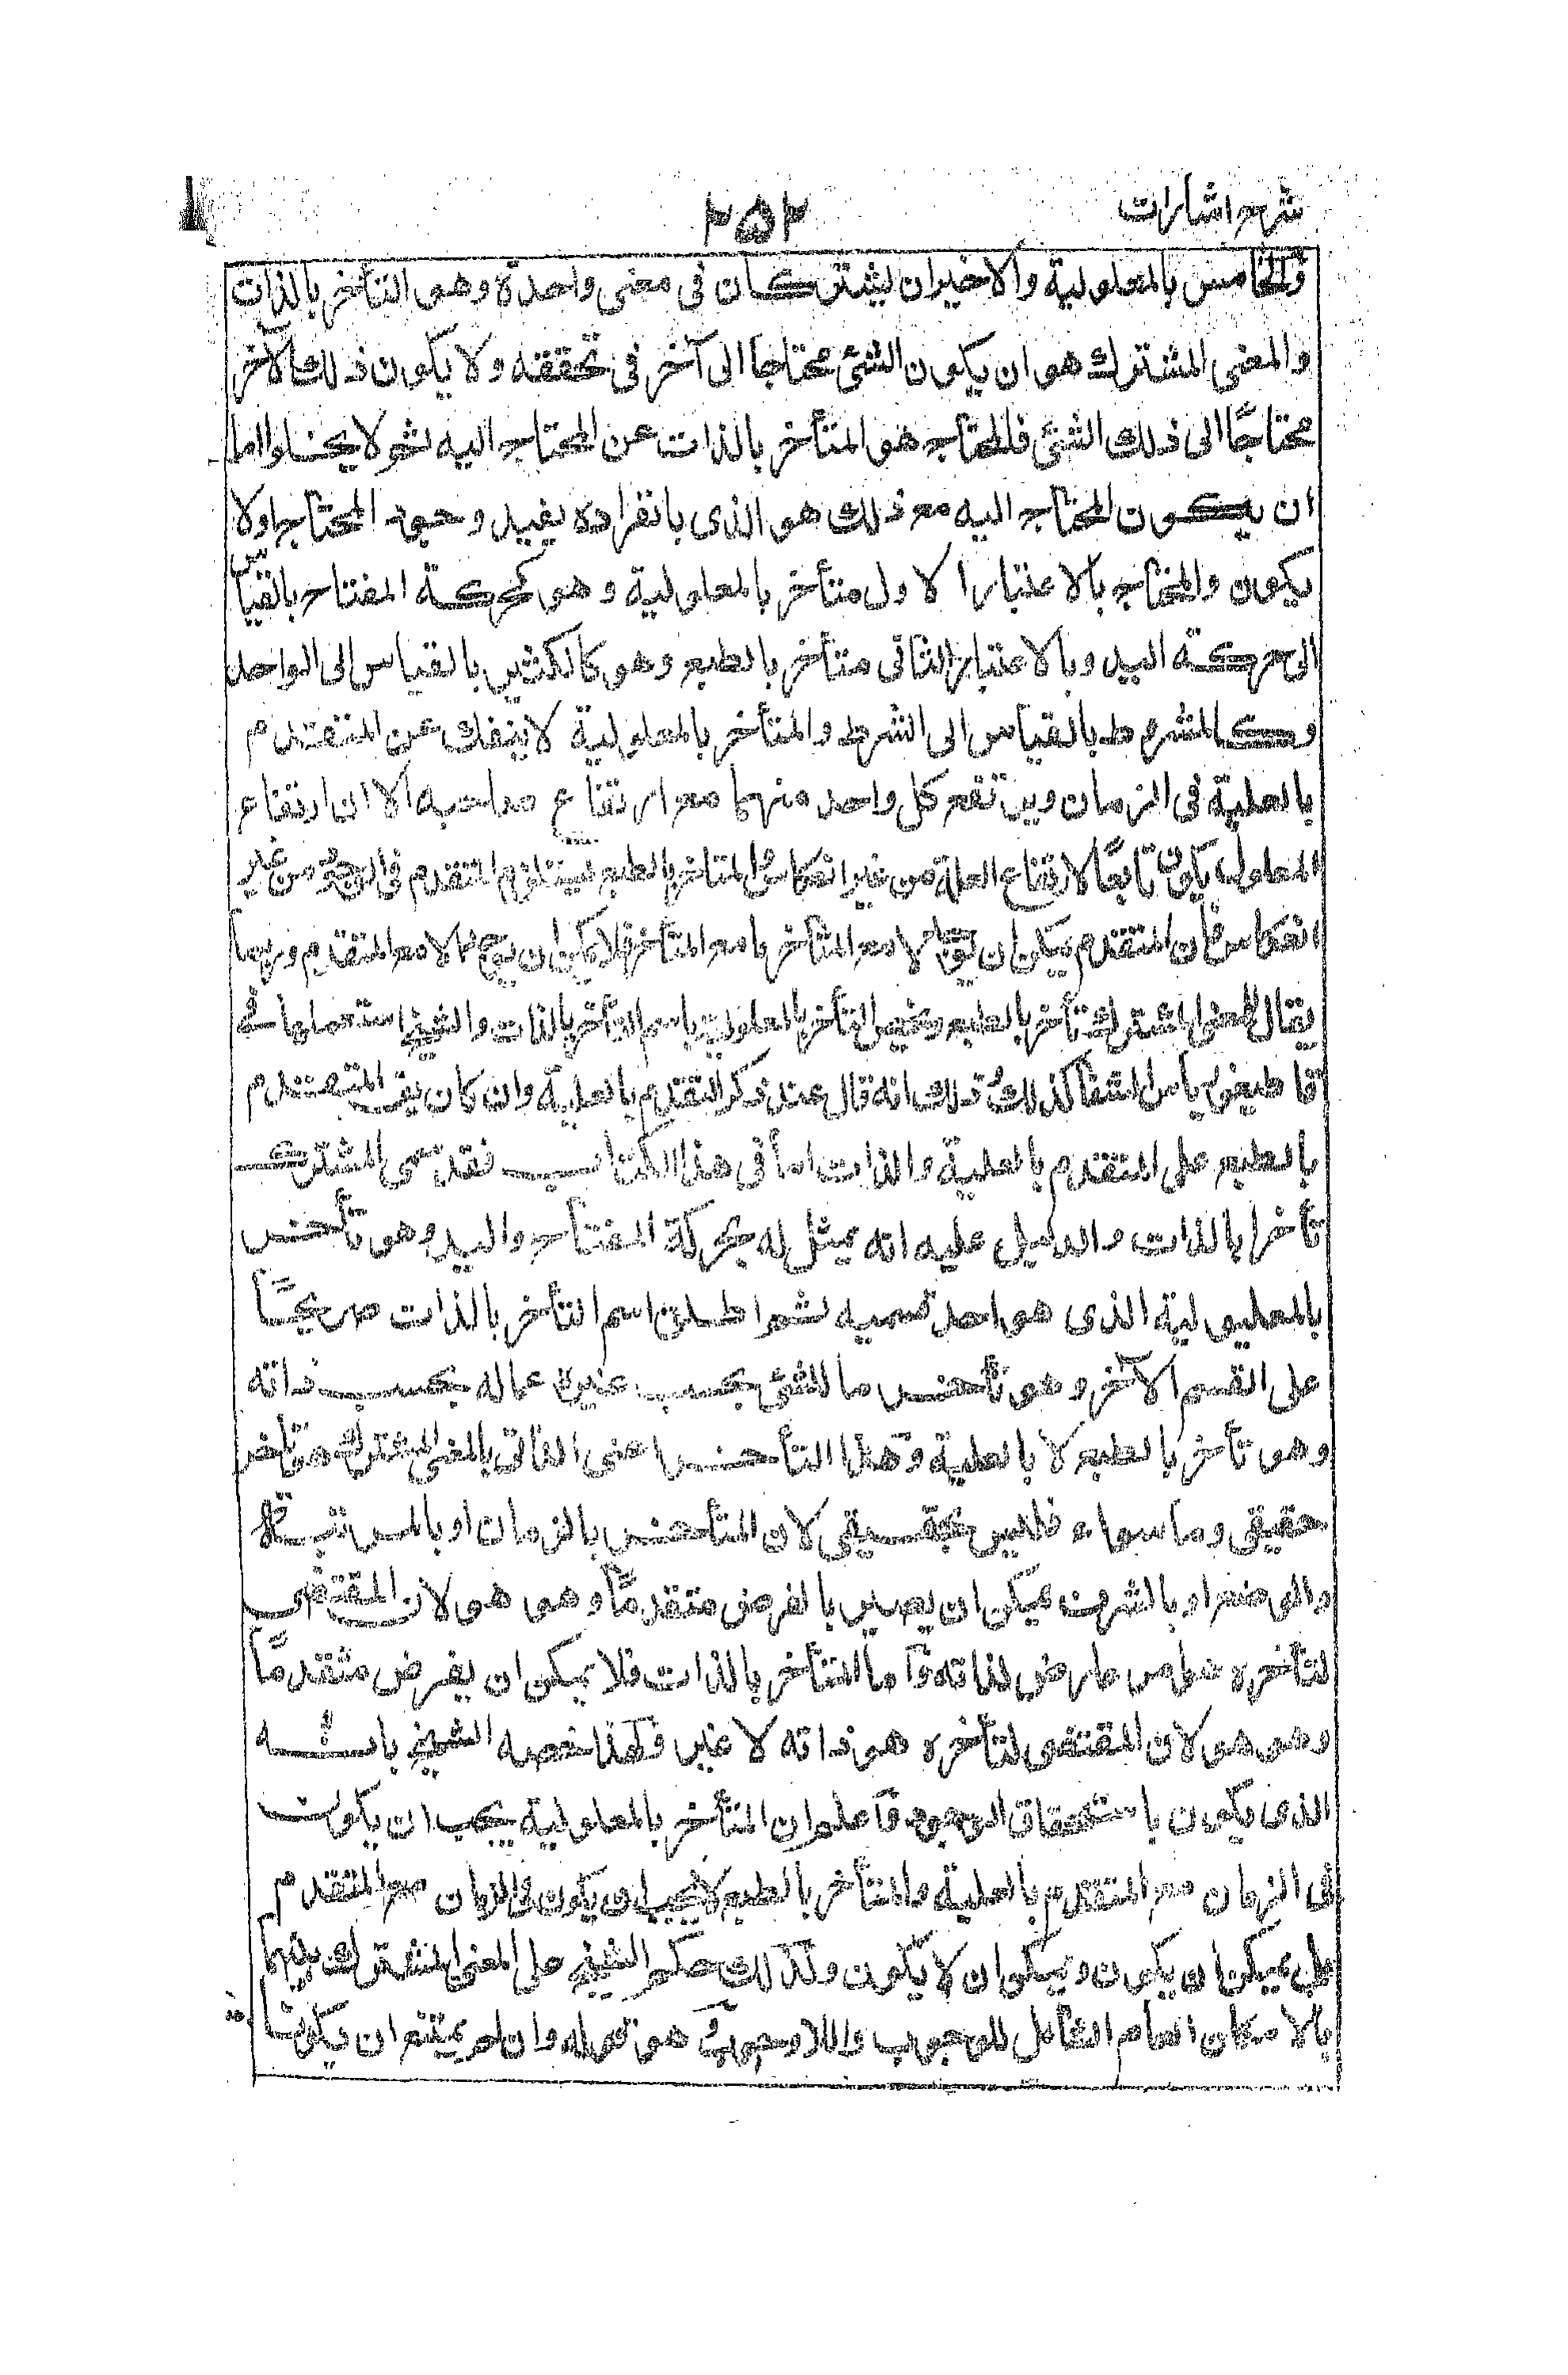 شرح اشارات
۲۵۲
والخامس بالمعلولية والاخيران يشتركان فى معنى واحدة وهو التأخر بالذات
والمعنى المشترك هو ان يكون الشئ محتاجا الى آخر فى تحققه ولا يكون ذلك الآخر
محتاجًا الى ذلك الشئ فالمحتاج هو المتأخر بالذات عن المحتاج اليه ثم لا يخلوا اما
ان يكون المحتاج اليه مع ذلك هو الذى بانفراده يفيد وجود المحتاج اولا
يكون والمحتاج بالاعتبار الاول متأخر بالمعلولية وهو كحركة المفتاح بالقياس
الى حركة اليد وبالاعتبار الثانى متأخر بالطبع وهو كالكثير بالقياس الى الواحد
وكالمشروط بالقياس الى الشرط والمتأخر بالمعلولية لا ينفك عن المتقدم
بالعلية فى الزمان ويرتفع كل واحد منهما مع ارتفاع صاحبه الا ان ارتفاع
المعلول يكون تابعًا لارتفاع العلة من غير انعكاس والمتاخر بالطبع يستلزم المتقدم فى الوجود من غير
انعكاس فان المتقدم يمكن ان يوجد لا مع المتأخر اما مع المتأخر فلا يمكن ان يوجد الا مع المتقدم وربما
يقال للمعنى المشترك تأخر بالطبع ويخص التأخر بالمعلولية باسم التأخر بالذات والشيخ استعملها فى
قاطيغورياس الشفا كذلك وذلك انه قال عند ذكر التقدم بالعلية وان كان يقر المتقدم
بالطبع على المتقدم بالعلية والذات اما فى هذا الكتاب فقد سمى المشترك
تأخرا بالذات والدليل عليه انه يمثل له بحركة المفتاح واليد وهو تأخر
بالمعلولية الذى هو احد قسميه ثم اطلق اسم التأخر بالذات صريحًا
على القسم الآخر وهو تأخر ما للشئ بحسب غيره عما له بحسب ذاته
وهو تأخر بالطبع لا بالعلية وهذا التأخر اعنى الذاتى بالمعنى المشترك هو تأخر
حقيقى وما سواه فليس بحقيقى لان المتأخر بالزمان او بالمرتبة
والوضع او بالشرف يمكن ان يصير بالفرض متقدمًا وهو هو لان المقتضى
لتأخره خاص عارض لذاته واما المتأخر بالذات فلا يمكن ان يفرض متقدمًا
وهو هو لان المقتضى لتأخره هو ذاته لا غير ولهذا خصه الشيخ بانه
الذى يكون باستحقاق الوجود واعلم ان المتأخر بالمعلولية يجب ان يكون
فى الزمان مع المتقدم بالعلية والمتأخر بالطبع لا يجب ان يكون فى الزمان مع المتقدم
بل يمكن ان يكون ويمكن ان لا يكون ولذلك حكم الشيخ على المعنى المشترك بينهما
بالامكان العام الشامل للوجوب واللاوجوب وهو قوله وان لم يمتنع ان يكونا